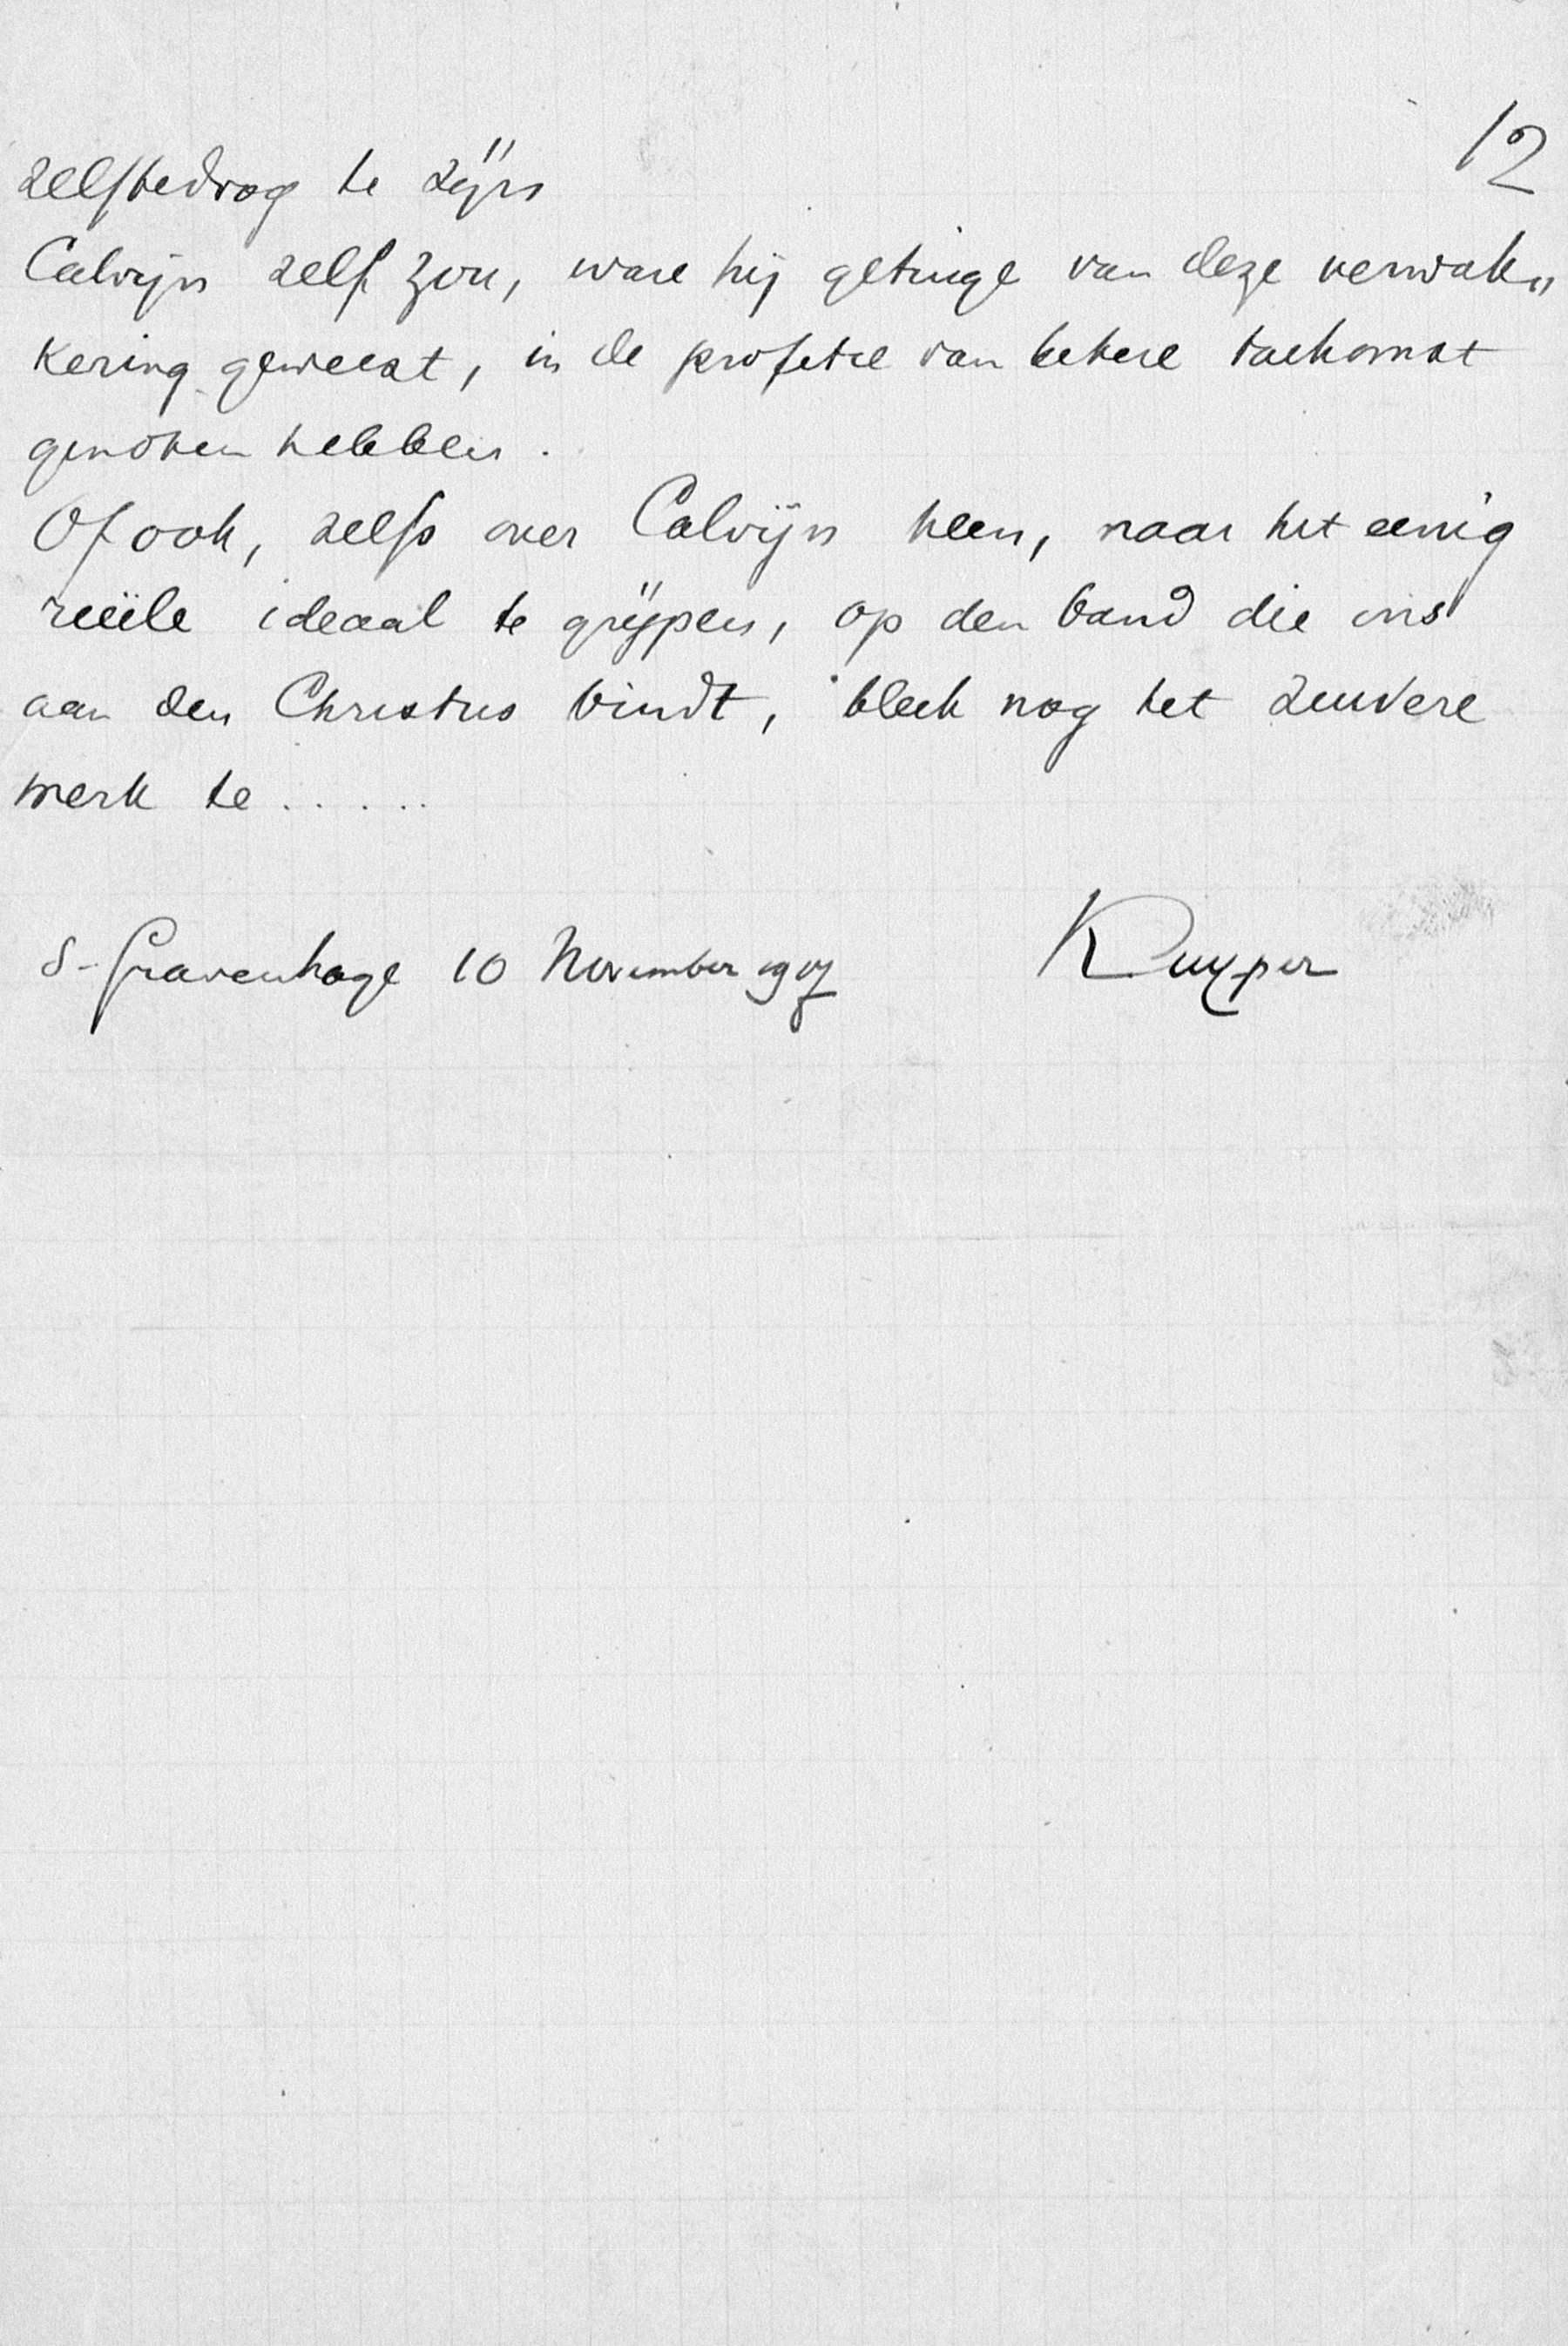 12
zelfbedrog te zijn
Calvijn zelf zou, ware hij getuige van deze verwak„
kering geweest, in de profetie van betere toekomst
genoten hebben.
Of ook, zelfs over Calvijn heen, naar het eenig
reëele ideaal te grijpen, op den band die ons
aan den Christus bindt, bleek nog het zuivere
merk te .....
S-Gravenhage 10 November 1907 Kuyper